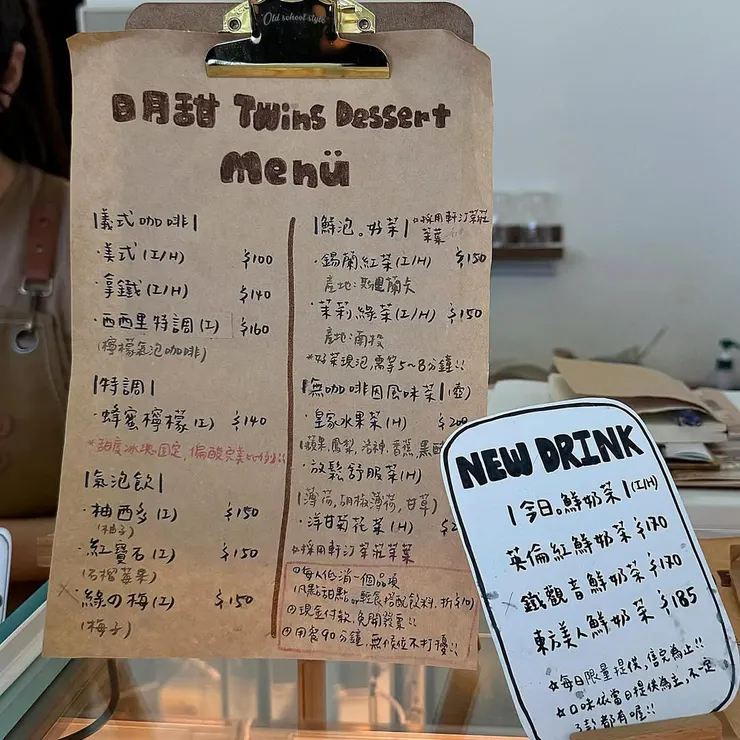 Old school style
日月甜 Twins Dessert
Menü
|義式咖啡|
·美式(I/H) $100
·拿鐵(I/H) $140
·西西里特調(I) $160
(檸檬氣泡咖啡)
|特調|
·蜂蜜檸檬(I) $140
*甜度冰塊固定,偏酸完美比例!!
|氣泡飲|
·柚西多(I) $150
(柚子)
·紅寶石(I) $150
(石榴莓果)
·綠の梅(I) $150
(梅子)
|鮮泡。好茶| *採用軒汀茶莊
茶葉
·錫蘭紅茶(I/H) $150
產地:斯里蘭卡
·茉莉綠茶(I/H) $150
產地:南投
*好茶現泡需等5~8分鐘!!
|無咖啡因風味茶|(壺)
·皇家水果茶(H) $200
(蘋果,鳳梨,洛神,香蕉,黑醋
·放鬆舒服茶(H)
(薄荷,胡椒薄荷,甘草)
·洋甘菊花茶(H) $2
*採用軒汀茶莊茶葉
①每人低消一個品項
凡點甜點or輕食搭配飲料,折$10
②現金付款,免開發票!!
③用餐90分鐘,無候位不打擾!!
NEW DRINK
|今日。鮮奶茶|(I/H)
英倫紅鮮奶茶 $170
鐵觀音鮮奶茶 $170
東方美人鮮奶茶 $185
☆每日限量提供,售完為止!!
☆口味依當日提供為主,不一定
3款都有喔!!